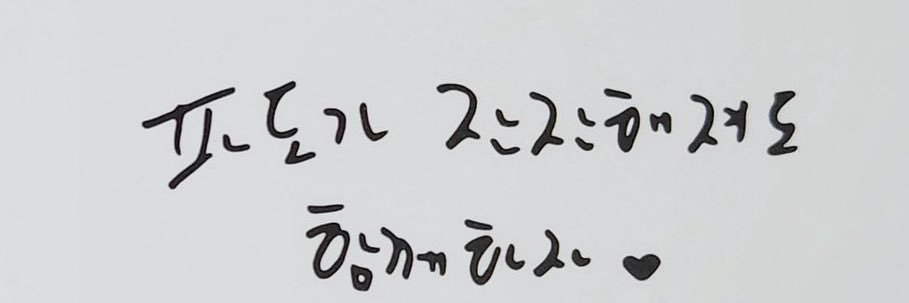 파도가 잔잔해져도
함께하자 ♥